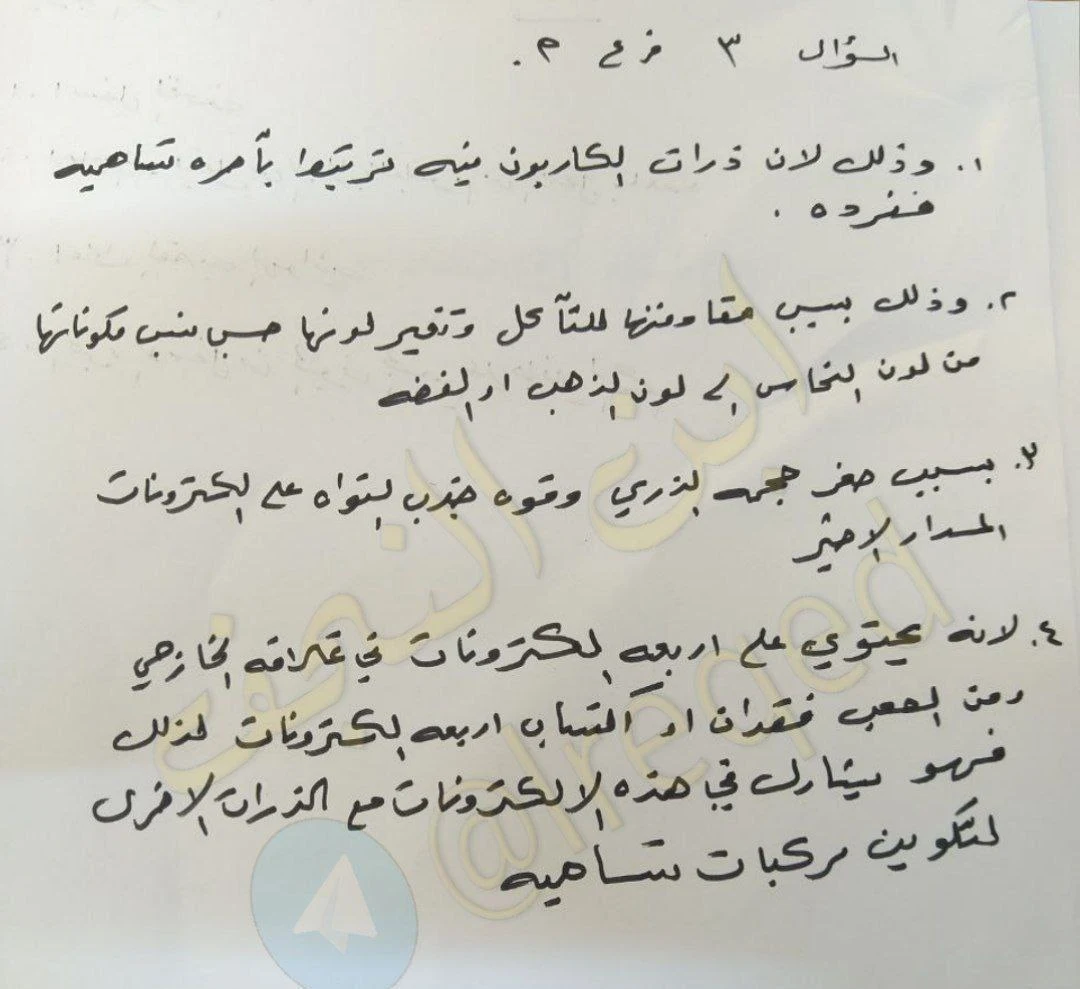 السؤال ٣ فرع م.
١. وذلك لان ذرات الكاربون فيه ترتبط بآصره تساهميه
منفرده.
٢. وذلك بسبب مقاومتها للتآكل وتغير لونها حسب نسب مكوناتها
من لون النحاس الى لون الذهب او الفضه
٣. بسبب صغر حجمه الذري وقوه جذب النواه على الكترونات
المدار الاخير
٤. لانه يحتوي على اربعه الكترونات في غلافه الخارجي
ومن الصعب فقدان او اكتساب اربعه الكترونات لذلك
فهو يشارك في هذه الالكترونات مع الذرات الاخرى
لتكوين مركبات تساهميه
ابن النجف
@lreqed